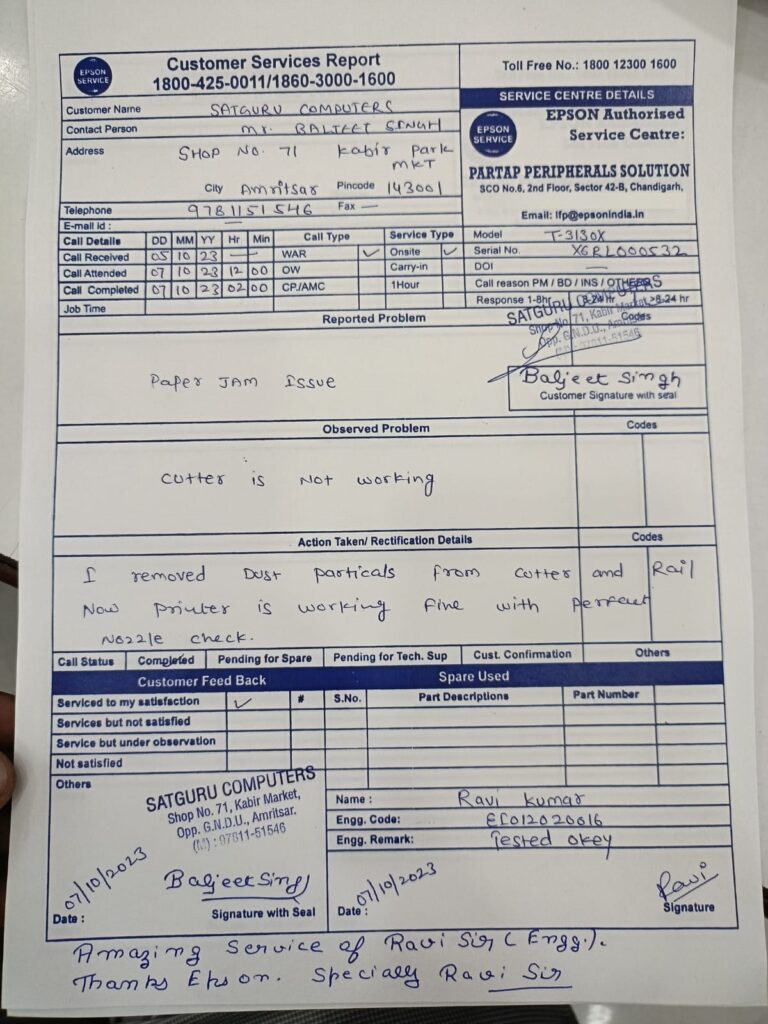 EPSON SERVICE
Customer Services Report
1800-425-0011/1860-3000-1600
Toll Free No.: 1800 12300 1600
Customer Name SATGURU COMPUTERS
Contact Person Mr. BALJEET SINGH
Address SHOP NO. 71 Kabir Park MKT
City Amritsar Pincode 143001
Telephone 9781151546 Fax —
E-mail id : —
SERVICE CENTRE DETAILS
EPSON SERVICE
EPSON Authorised
Service Centre:
PARTAP PERIPHERALS SOLUTION
SCO No.6, 2nd Floor, Sector 42-B, Chandigarh,
Email: lfp@epsonindia.in
Call Details DD MM YY Hr Min Call Type Service Type
Call Received 05 10 23 — WAR ✓ Onsite ✓
Call Attended 07 10 23 12 00 OW Carry-in
Call Completed 07 10 23 02 00 CP./AMC 1Hour
Job Time
Model T-3130X
Serial No. X6RL000532
DOI —
Call reason PM / BD / INS / OTHERS
Response 1-8hr 8-24 hr >8-24 hr
Reported Problem Codes
SATGURU COMPUTERS
Shop No. 71, Kabir Market,
Opp. G.N.D.U., Amritsar.
(M) : 97811-51546
Paper JAM Issue
Baljeet Singh
Customer Signature with seal
Observed Problem Codes
Cutter is Not working
Action Taken/ Rectification Details Codes
I removed Dust particals from cutter and Rail
Now printer is working fine with perfect
Nozzle check.
Call Status Completed Pending for Spare Pending for Tech. Sup Cust. Confirmation Others
Customer Feed Back Spare Used
Serviced to my satisfaction ✓ # S.No. Part Descriptions Part Number
Services but not satisfied
Service but under observation
Not satisfied
Others
SATGURU COMPUTERS
Shop No. 71, Kabir Market,
Opp. G.N.D.U., Amritsar.
(M) : 97811-51546
Name : Ravi kumar
Engg. Code: EC012020016
Engg. Remark: Tested okey
07/10/2023 Baljeet Singh
Date : Signature with Seal
07/10/2023 Ravi
Date : Signature
Amazing Service of Ravi Sir (Engg.).
Thanks Epson. Specially Ravi Sir